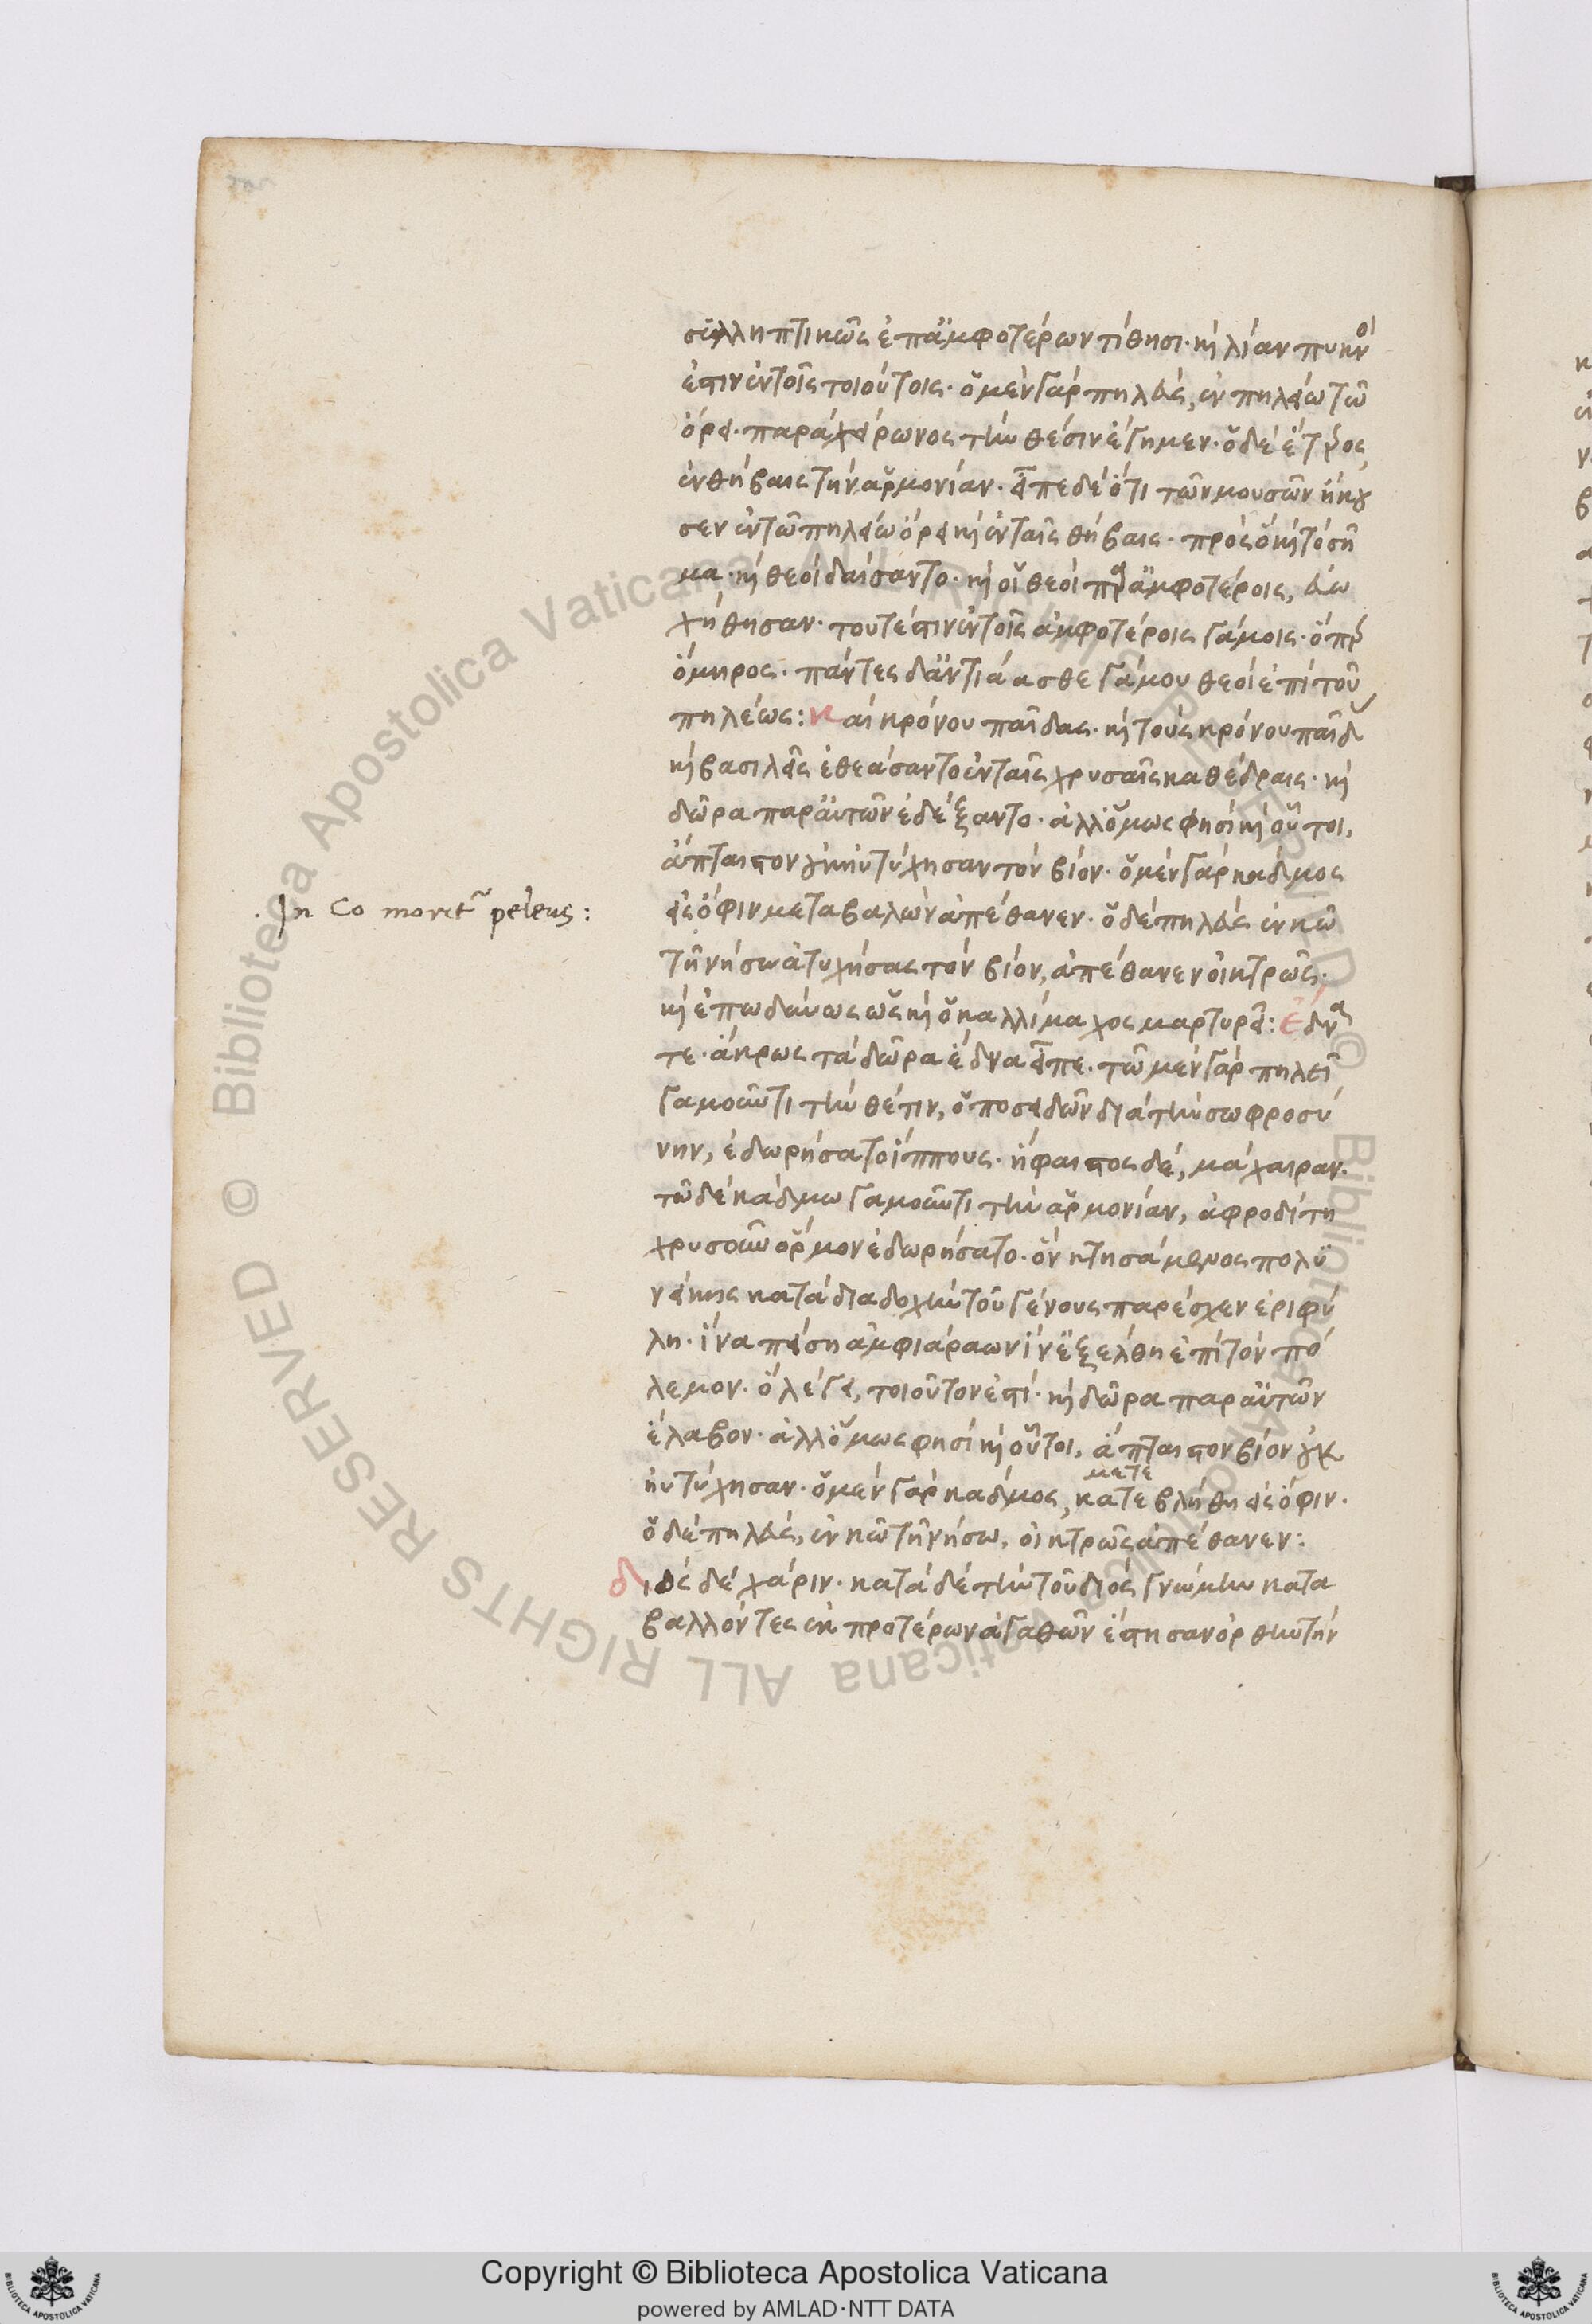 συλληπτικῶς ἐπ' ἀμφοτέρων τίθησι· κὴ λίαν πυκνοὶ
ἐστιν ἐν τοῖς τοιούτοις· ὁ μὲν γὰρ πηλεὺς, ἐν πηλείω τῶ
ὄρει· παρὰ χείρωνος τὴν θέσιν ἔγημεν· ὁ δὲ ἕτερος
ἐν θήβαις τὴν ἁρμονίαν· εἶπε δὲ ὅτι τῶν μουσῶν ἤκου
σεν ἐν τῶ πηλείω ὄρει κὴ ἐν ταῖς θήβαις· πρὸς ὃ κὴ τὸ σῆ
μα· κὴ θεοὶ δαίσαντο· κὴ οἱ θεοὶ παρ' ἀμφοτέροις, εὐω
χήθησαν· τουτέστιν ἐν τοῖς ἀμφοτέροις γάμοις· ὅπερ
ὅμηρος· πάντες δ' ἀντιάασθε γάμου θεοὶ ἐπὶ τοῦ
πηλέως: καὶ κρόνου παῖδας· κὴ τοὺς κρόνου παῖδας
κὴ βασιλεῖς ἐθεάσαντο ἐν ταῖς χρυσαῖς καθέδραις· κὴ
δῶρα παρ' αὐτῶν ἐδέξαντο· ἀλλ' ὅμως φησὶ κὴ οὗτοι,
ἄπταιστον οὐκ ηὐτύχησαν τὸν βίον· ὁ μὲν γὰρ κάδμος
εἰς ὄφιν μεταβαλὼν ἀπέθανεν· ὁ δὲ πηλεὺς ἐν κῶ
τῆ νήσω ἀτυχήσας τὸν βίον, ἀπέθανεν οἰκτρῶς·
κὴ ἐπωδύνως ὡς κὴ ὁ καλλίμαχος μαρτυρεῖ: ἕδνα
τε· ἄκρως τὰ δῶρα ἕδνα εἶπε· τῶ μὲν γὰρ πηλεῖ
γαμοῦντι τὴν θέτιν, ὁ ποσειδῶν διὰ τὴν σωφροσύ
νην, ἐδωρήσατο ἵππους· ἥφαιστος δὲ, μάχαιραν.
τῶ δὲ κάδμω γαμοῦντι τὴν ἁρμονίαν, ἀφροδίτη
χρυσοῦν ὅρμον ἐδωρήσατο· ὃν κτησάμενος πολυ
νείκης κατὰ διαδοχὴν τοῦ γένους παρέσχεν ἐριφύ
λη· ἵνα πείση ἀμφιάραων ἵν' ἐξέλθη ἐπὶ τὸν πό
λεμον· ὃ λέγει, τοιοῦτον ἐστί· κὴ δῶρα παρ' αὐτῶν
ἔλαβον· ἀλλ' ὅμως φησὶ κὴ οὗτοι, ἄπταιστον βίον οὐκ
ηὐτύχησαν· ὁ μὲν γὰρ κάδμος, κατεβλήθη εἰς ὄφιν.
μετε
ὁ δὲ πηλεὺς, ἐν κῶ τῆ νήσω, οἰκτρῶς ἀπέθανεν:
διὸς δὲ χάριν· κατὰ δὲ τὴν τοῦ διὸς γνώμην κατα
βαλλόντες ἐκ προτέρων ἀγαθῶν ἔστησαν ὀρθὴν τὴν
.In Co morit~ peleus:
Copyright © Biblioteca Apostolica Vaticana
powered by AMLAD·NTT DATA
© Biblioteca Apostolica Vaticana ALL RIGHTS RESERVED
© Biblioteca Apostolica Vaticana ALL RIGHTS RESERVED